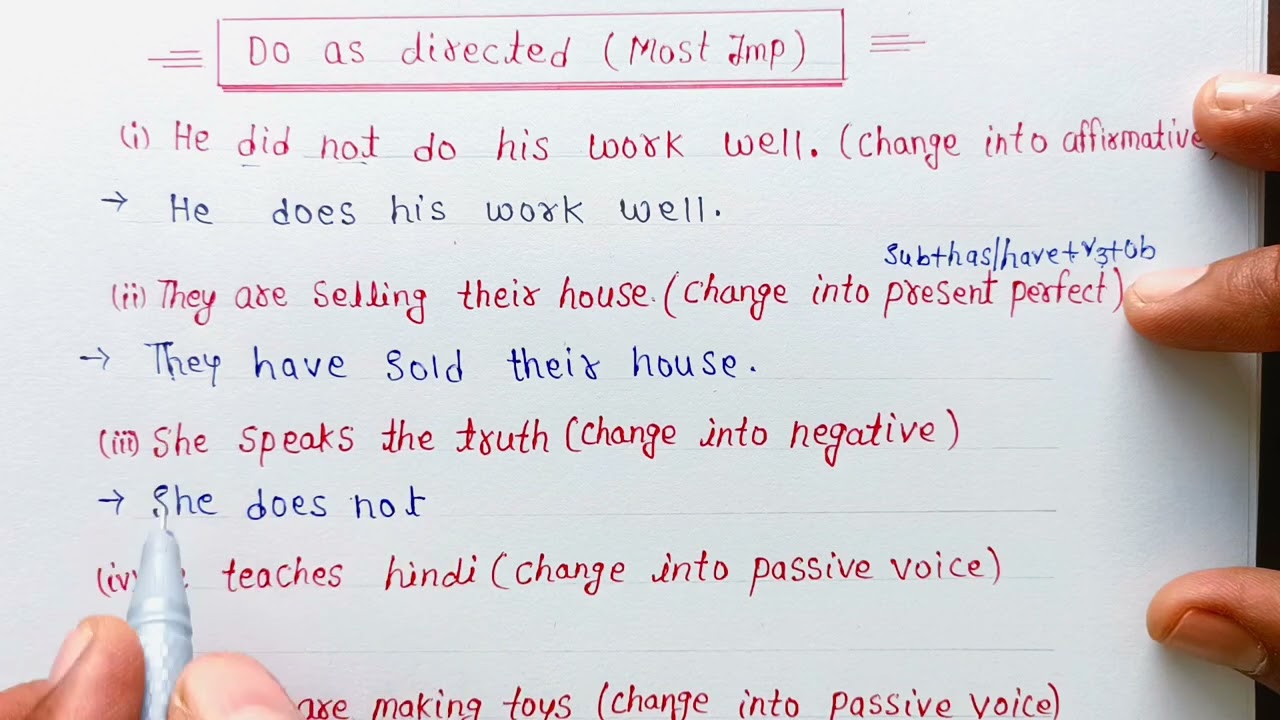 Do as directed (Most Imp)
(i) He did not do his work well. (change into affirmative)
→ He does his work well.
sub+has/have+V3+ob
(ii) They are selling their house. (change into present perfect)
→ They have sold their house.
(iii) She speaks the truth (change into negative)
→ She does not
(iv) teaches hindi (change into passive voice)
are making toys (change into passive voice)